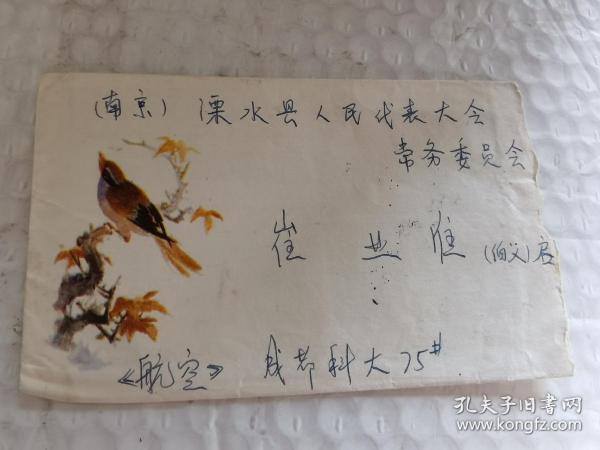 (南京) 溧水县人民代表大会
常务委员会
崔 业 胜 (伯父) 启
《航空》 成都科大75#
孔夫子旧书网
www.kongfz.com